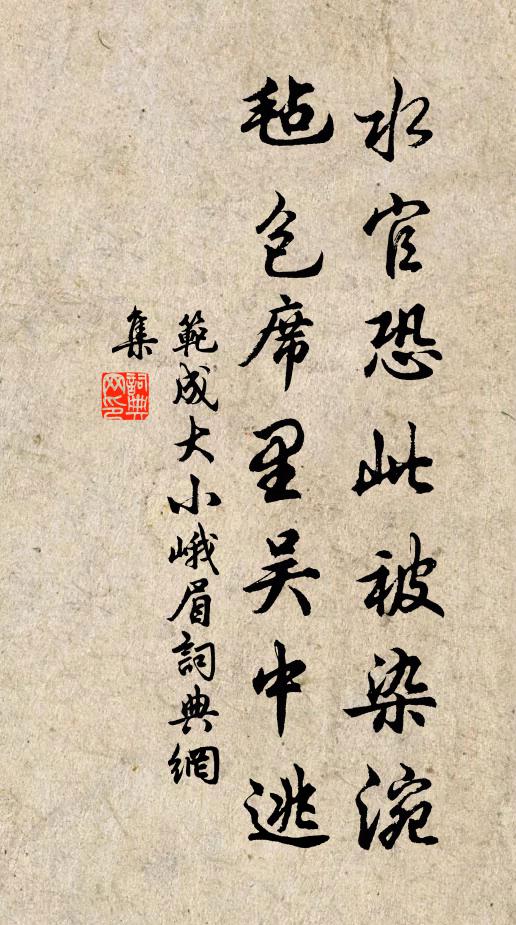 水官恐此被染涴
氈包席里吴中逃
範成大小峨眉詞典網
集
詞典网印